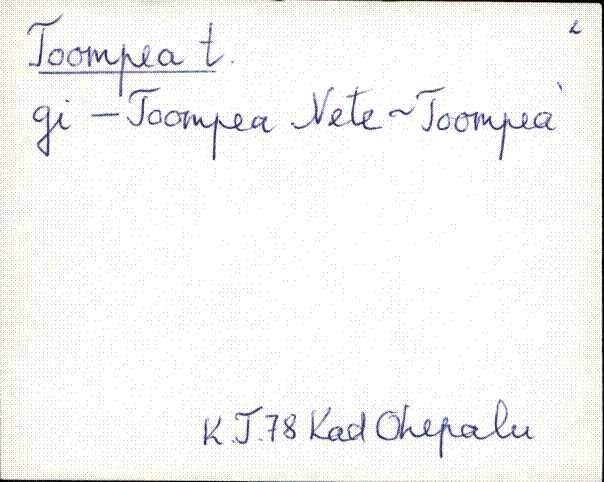 2
Toompea t.
gi – Toompea Nete ~ Toompea`
K.T. 78 Kad Ohepalu